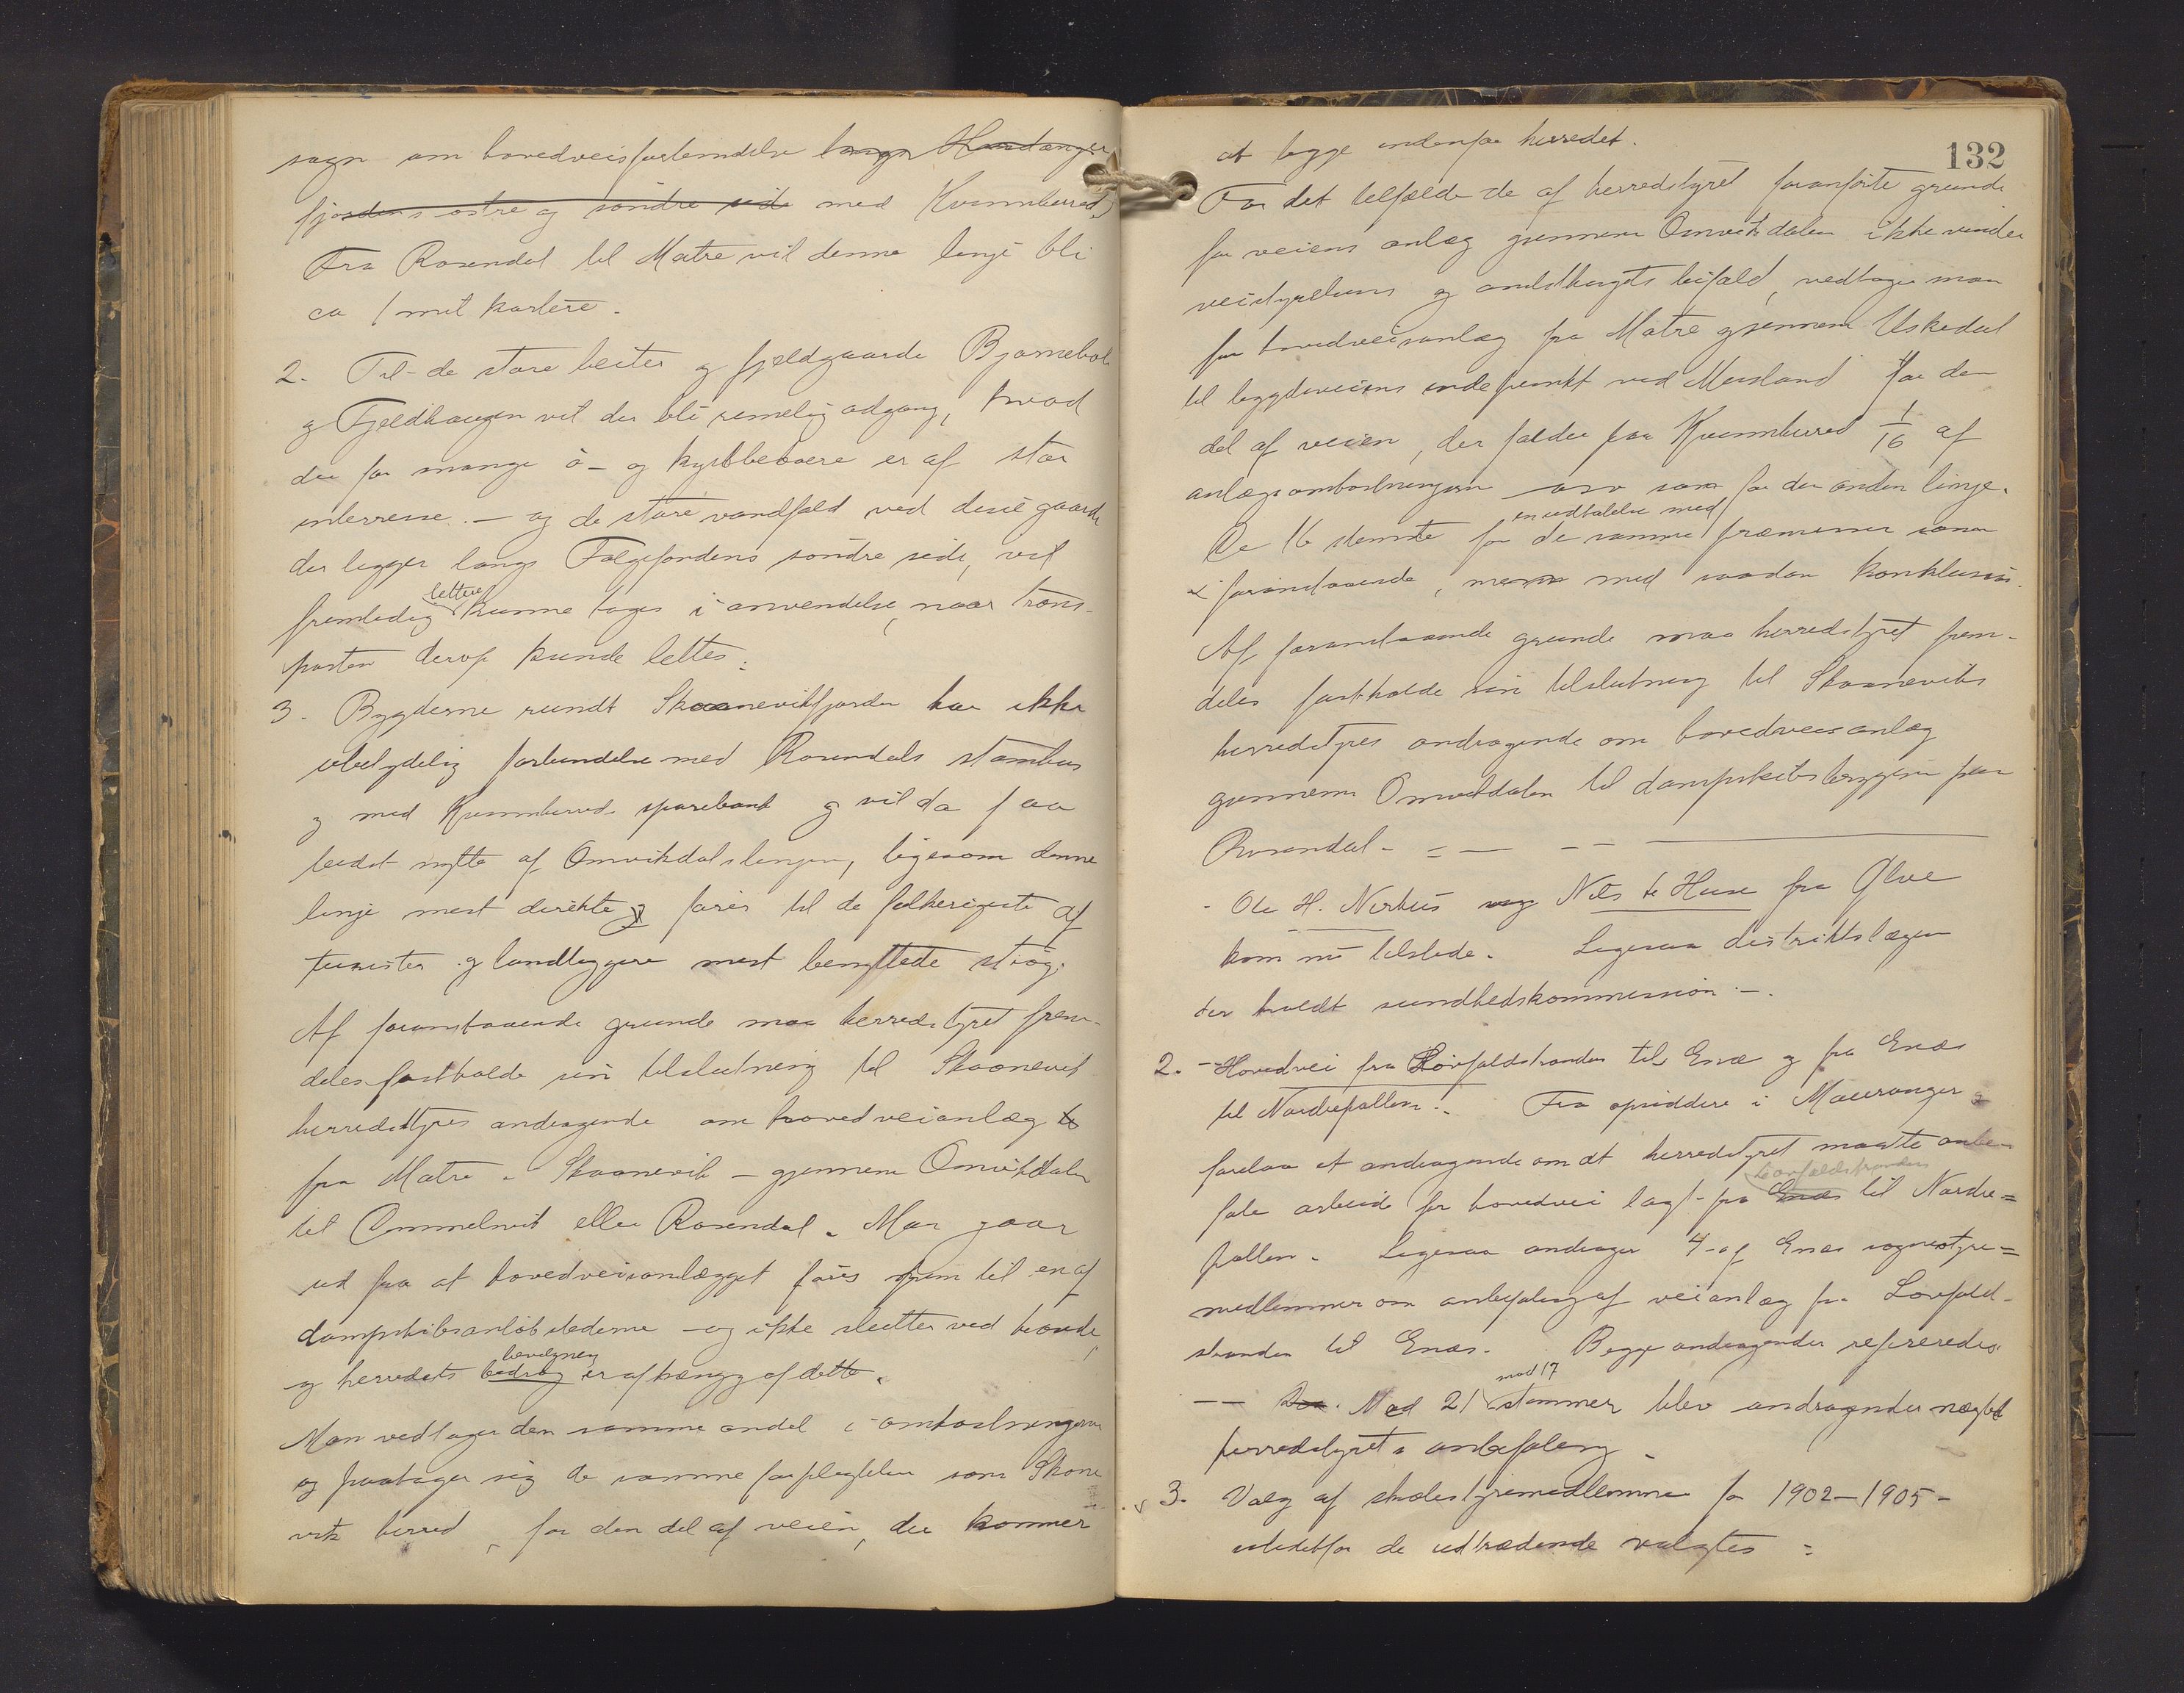 sogn om hovedveisforbindelse langs Hardanger
fjordens østre og søndre side med Kvinnherred,
Fra Rosendal til Matre vil denne linje bli
ca 1 mil kortere.
2. Til de store beiter og fjeldgaarde Bjørnebøl
og Fjeldhaugen vil der bli rimelig adgang, hvad
der for mange ø- og kystbeboere er af stor
interresse. – og de store vandfald ved disse gaarde
der ligger langs Folgefondens søndre side, vil
lettere
fremtidig kunne tages i anvendelse, naar trans-
porten derop kunde lettes.
3. Bygderne rundt Skaanevikfjorden har ikke
ubetydelig forbindelse med Rosendals stambus
og med Kvinnherreds sparebank og vil da faa
bedst nytte af Omvikdalslinjen, ligesom denne
linje mest direkte føres til de folkerigeste af
turister og landliggere mest benyttede strøg.
Af foranstaaende grunde maa herredstyret frem-
deles fastholde sin tilslutning til Skaanevik
herredstyres andragende om hovedveianlæg
fra Matre – Skaanevik – gjennem Omvikdalen
til Ømmelvik eller Rosendal. Man gaar
ud fra at hovedveianlægget føres frem til en af
dampskibsanløbstederne – og ikke slutter ved
bevilgning
og herredets bidrag er afhængig af dette.
Man vedtager den samme andel i omkostningerne
og paatager sig de samme forpligtelser som Skone
vik herred, for den del af veien, der kommer
132
at ligge indenfor herredet.
For det tilfælde de af herredstyret foranførte grunde
for veiens anlæg gjennem Omvikdalen ikke vinder
veistyrelsens og amtsthingets bifald, vedtager man
for hovedveianlæg fra Matre gjennem Uskedal
til bygdeveiens endepunkt ved Musland for den
del af veien, der falder paa Kvinnherred 1/16 af
anlægsomkostningerne osv som for den anden linje.
en udtalelse med
De 16 stemte for de samme præmisser som
i foranstaaende, men med saadan konklusion.
Af foranstaaende grunde maa herredstyret frem-
deles fastholde sin tilslutning til Skaaneviks
herredstyres andragende om hovedveianlæg
gjennem Omvikdalen til dampskibsbryggen paa
Rosendal –
Ole H. Nerhus og Nils te Huse fra Ølve
kom nu tilstede. Ligesaa distriktslægen
der holdt sundhedskommission –.
2. – Hovedvei fra Løvfaldstranden til Enæs og fra Enæs
til Nordrepollen. Fra opsiddere i Mauranger
forelaa et andragende om at herredstyret maatte anbe-
Løvfaldstranden
fale arbeide for hovedvei lagt fra Enæs til Nordre=
pollen. Ligesaa andrager 4 af Enæs sognestyre=
medlemmer om anbefaling af veianlæg fra Løvfald-
stranden til Enæs. Begge andragender refereredes.
mod 17
–– Med 21 stemmer blev andragendet nægtet
herredstyrets anbefaling
3. Valg af skolestyremedlemmer for 1902–1905 –
istedetfor de udtrædende valgtes :